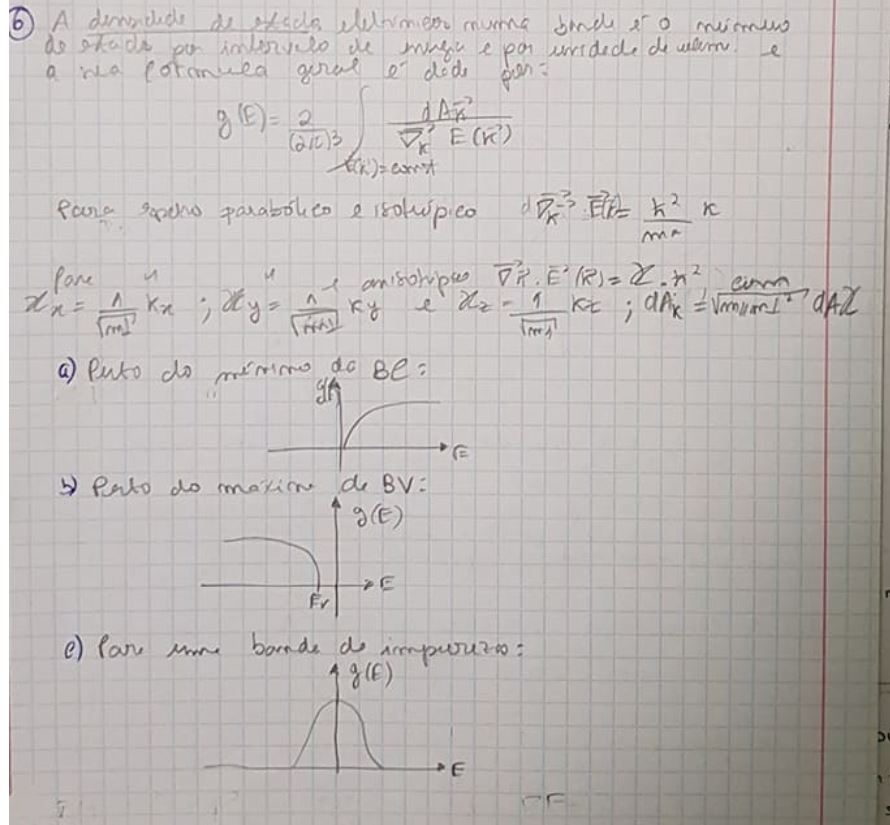 6 A densidade de estados eletrónicos numa banda é o número
de estados por intervalo de energia e por unidade de volum. e
a sua formula geral é dada por:
g(E) = 2/(2π)³ ∫ dA_k⃗ / ∇⃗_k⃗ E(k⃗)
E(k)=const
Para parabólico e isotrópico d ∇⃗_k⃗ . E⃗(k) = ħ²/m* k
Para " " anisotrópico ∇⃗k⃗ . E⃗(k⃗) = X . ħ²
X_x = 1/√m k_x ; X_y = 1/√m k_y e X_z = 1/√m k_z ; dA_k = dAX
a) Perto do mínimo da BC:
g
E
b) Perto do máximo da BV:
g(E)
Ev
E
c) Para uma banda de impurezas:
g(E)
E